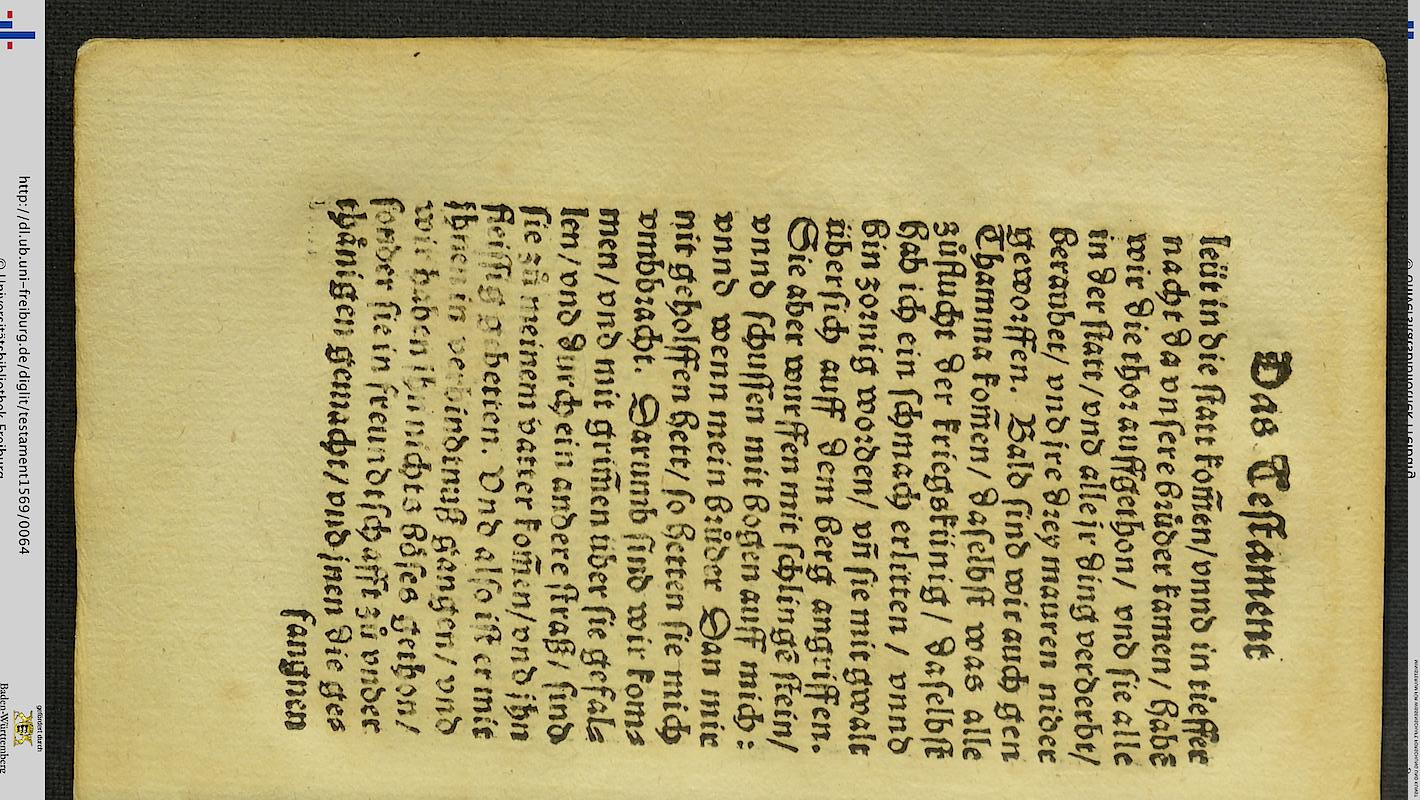 Das Testament
leüt in die statt kom̃en/vnnd in tieffer
nacht da vnsere brůder kamen/ habẽ
wir die thor auffgethon/ vnd sie alle
in der statt/vnd alle jr ding verderbt/
beraubet/ vnd jre drey mauren nider
geworffen. Bald sind wir auch gen
Thamma kom̃en/ daselbst was alle
zůflucht der kriegskünig/ daselbst
hab ich ein schmach erlitten/ vnnd
bin zornig worden/ vñ sie mit gwalt
übersich auff dem berg angriffen.
Sie aber wurffen mit schlingẽ stein/
vnnd schussen mit bogen auff mich:
vnnd wenn mein brůder Dan mir
nit geholffen hett/ so hetten sie mich
vmbbracht. Darumb sind wir kom⸗
men/vnd mit grim̃en über sie gefal⸗
len/vnd durch ein andere straß/ sind
sie zů meinem vatter kom̃en/vnd jhn
fleissig gebetten. Vnd also ist er mit
jhnen in verbindtnuß gangen/ vnd
wir haben jhn nichts böses gethon/
sonder sie in freundtschafft zů vnder
thänigen gemacht/vnd jnen die ge⸗
fangnen
http://dl.ub.uni-freiburg.de/diglit/testament1569/0064
© Universitätsbibliothek Freiburg
gefördert durch
Baden-Württemberg